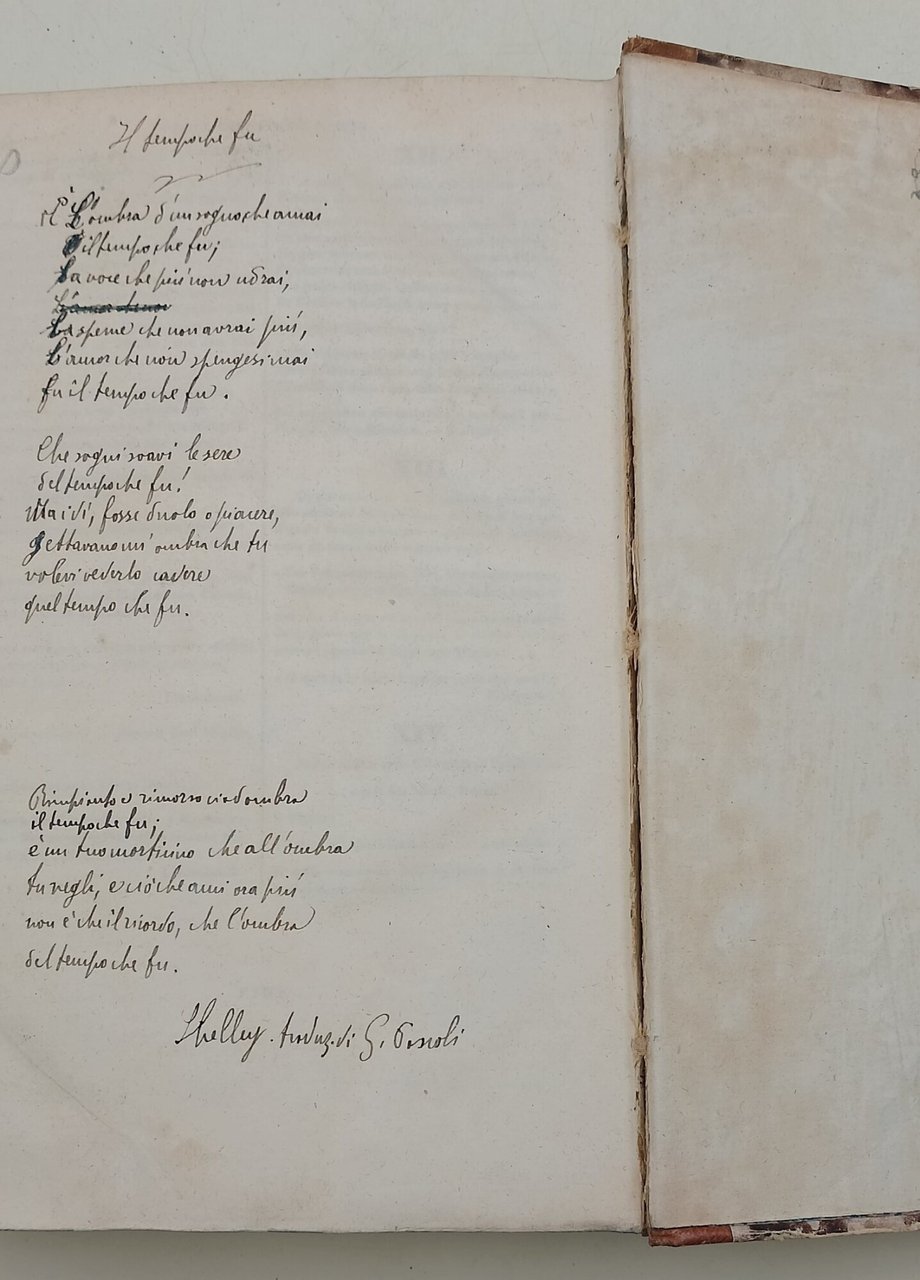 Il tempo che fu
È L'ombra d'un sogno che amai
il tempo che fu;
La voce che più non udrai,
L'amor che non
La speme che non avrai più,
L'amor che non spengesi mai
fu il tempo che fu.
Che sogni soavi le sere
del tempo che fu!
Ma i dì, fosse duolo o piacere,
gettavano un' ombra che tu
volevi vederlo cadere
quel tempo che fu.
Rimpianto e rimorso ci adombra
il tempo che fu;
è un tuo morticino che all'ombra
tu vegli, e ciò che ami ora più
non è che il ricordo, che l'ombra
del tempo che fu.
Shelley. traduz. di G. Pascoli